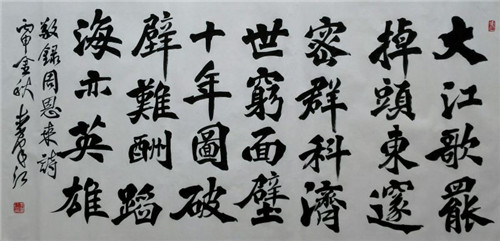 大江歌罷
掉頭東邃
密群科濟
世窮面壁
十年圖破
壁難酬蹈
海亦英雄
敬錄周恩來詩
丙申金秋